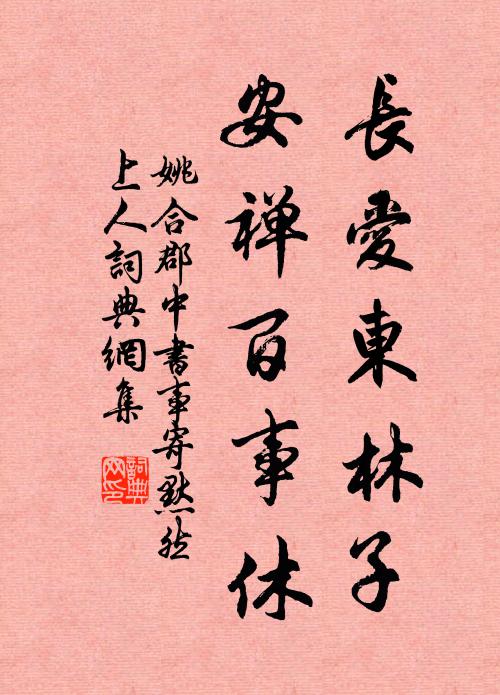 長愛東林子
安禅百事休
姚合郡中書事寄默然
上人詞典網集
詞典
网印